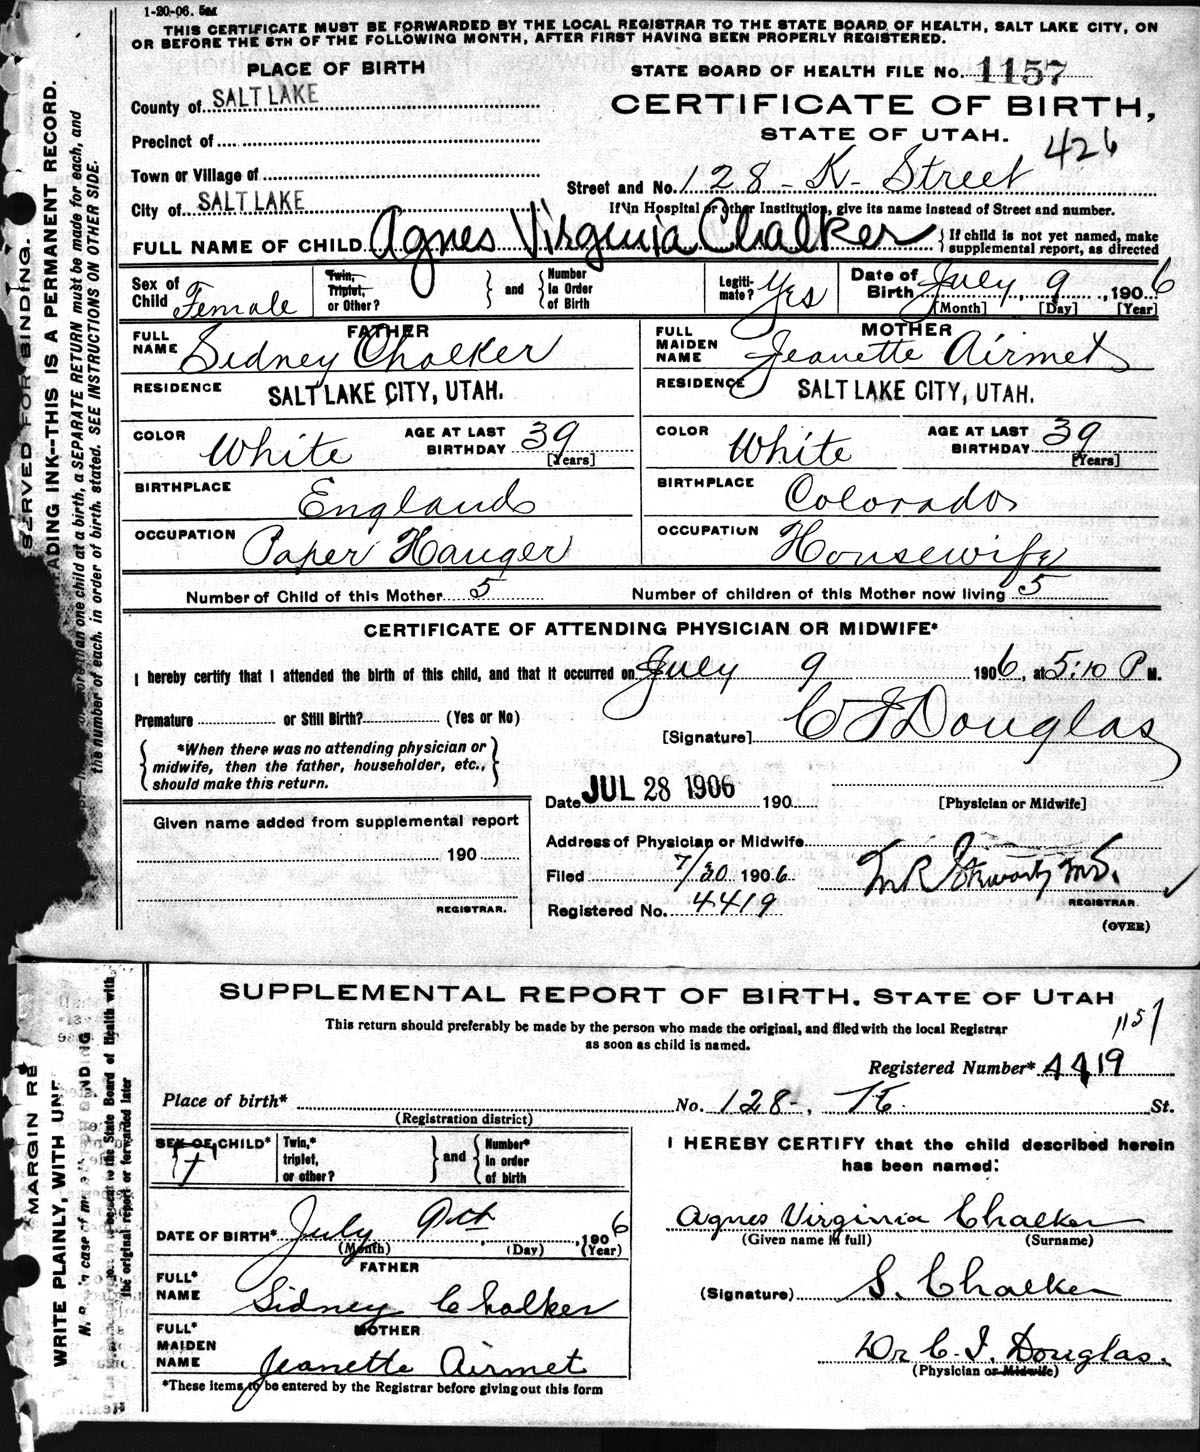 1-20-06. 5M
THIS CERTIFICATE MUST BE FORWARDED BY THE LOCAL REGISTRAR TO THE STATE BOARD OF HEALTH, SALT LAKE CITY, ON
OR BEFORE THE 5TH OF THE FOLLOWING MONTH, AFTER FIRST HAVING BEEN PROPERLY REGISTERED.
PLACE OF BIRTH
STATE BOARD OF HEALTH FILE NO. 1157
County of SALT LAKE
CERTIFICATE OF BIRTH,
STATE OF UTAH.
426
Precinct of
Town or Village of
Street and No. 128 - K - Street
City of SALT LAKE
If in Hospital or other Institution, give its name instead of Street and number.
FULL NAME OF CHILD Agnes Virginia Chalker { If child is not yet named, make supplemental report, as directed
Sex of Child Female
Twin, Triplet, or Other? } and { Number in Order of Birth
Legitimate? Yes
Date of Birth July 9, 1906
[Month] [Day] [Year]
FATHER
FULL NAME Sidney Chalker
MOTHER
FULL MAIDEN NAME Jeanette Airmet
RESIDENCE SALT LAKE CITY, UTAH.
RESIDENCE SALT LAKE CITY, UTAH.
COLOR White AGE AT LAST BIRTHDAY 39 [Years]
COLOR White AGE AT LAST BIRTHDAY 39 [Years]
BIRTHPLACE England
BIRTHPLACE Colorado
OCCUPATION Paper Hanger
OCCUPATION Housewife
Number of Child of this Mother 5
Number of children of this Mother now living 5
CERTIFICATE OF ATTENDING PHYSICIAN OR MIDWIFE*
I hereby certify that I attended the birth of this child, and that it occurred on July 9 1906, at 5:10 P M.
Premature or Still Birth? (Yes or No)
[Signature] C F Douglas
{ *When there was no attending physician or midwife, then the father, householder, etc., should make this return. }
Date JUL 28 1906 190
[Physician or Midwife]
Given name added from supplemental report
190
REGISTRAR.
Address of Physician or Midwife
Filed 7/30 1906
M.D.
REGISTRAR.
Registered No. 4419
(OVER)
SERVED FOR BINDING.
ADING INK--THIS IS A PERMANENT RECORD.
than one child at a birth, a SEPARATE RETURN must be made for each, and
the number of each, in order of birth, stated. SEE INSTRUCTIONS ON OTHER SIDE.
SUPPLEMENTAL REPORT OF BIRTH, STATE OF UTAH
This return should preferably be made by the person who made the original, and filed with the local Registrar
as soon as child is named.
1157
Registered Number* 4419
Place of birth* No. 128 - K St.
(Registration district)
SEX OF CHILD* F
Twin,* triplet, or other? } and { Number* in order of birth
I HEREBY CERTIFY that the child described herein
has been named:
DATE OF BIRTH* July 9th, 1906
(Month) (Day) (Year)
Agnes Virginia Chalker
(Given name in full) (Surname)
FATHER
FULL* NAME Sidney Chalker
(Signature) S. Chalker
MOTHER
FULL* MAIDEN NAME Jeanette Airmet
Dr C. F. Douglas.
(Physician or Midwife)
*These items to be entered by the Registrar before giving out this form
MARGIN RE
WRITE PLAINLY, WITH UNF
the State Board of Health with
the original report or forwarded later